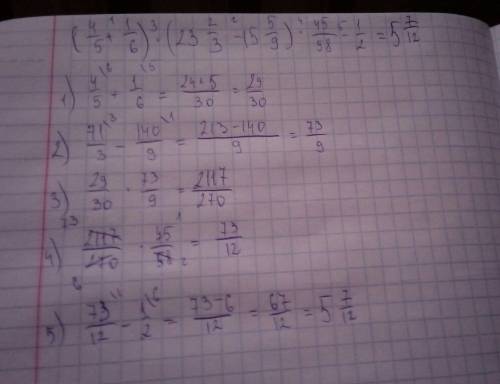 (4/5 +¹ 1/6) ·³ (23 2/3 -² 15 5/9) ·⁴ 45/58 -⁵ 1/2 = 5 7/12
1) 4/5 \6 + 1/6 \5 = 24+5/30 = 29/30
2) 71/3 \3 - 140/9 \1 = 213-140/9 = 73/9
3) 29/30 · 73/9 = 2117/270
4) 73 2117/270 6 · 45/58 1 2 = 73/12
5) 73/12 \1 - 1/2 \6 = 73-6/12 = 67/12 = 5 7/12